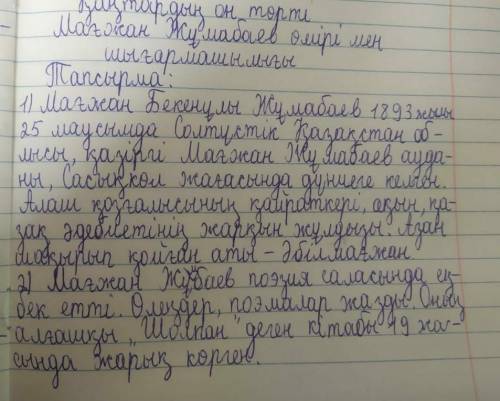 Қаңтардың он төрті
Мағжан Жұмабаев өмірі мен
шығармашылығы
Тапсырма:
1) Мағжан Бекенұлы Жұмабаев 1893 жылы
25 маусымда Солтүстік Қазақстан об-
лысы, қазіргі Мағжан Жұмабаев ауда-
ны, Сасықкөл жағасында дүниеге келген.
Алаш қозғалысының қайраткері, ақын, қа-
зақ әдебиетінің жарқын жұлдызы. Азан
шақырып қойған аты - Әбілмағжан.
2) Мағжан Жұмабаев поэзия саласында ең-
бек етті. Өлеңдер, поэмалар жазды. Оның
алғашқы „Шолпан" деген кітабы 19 жа-
сында жарық көрген.